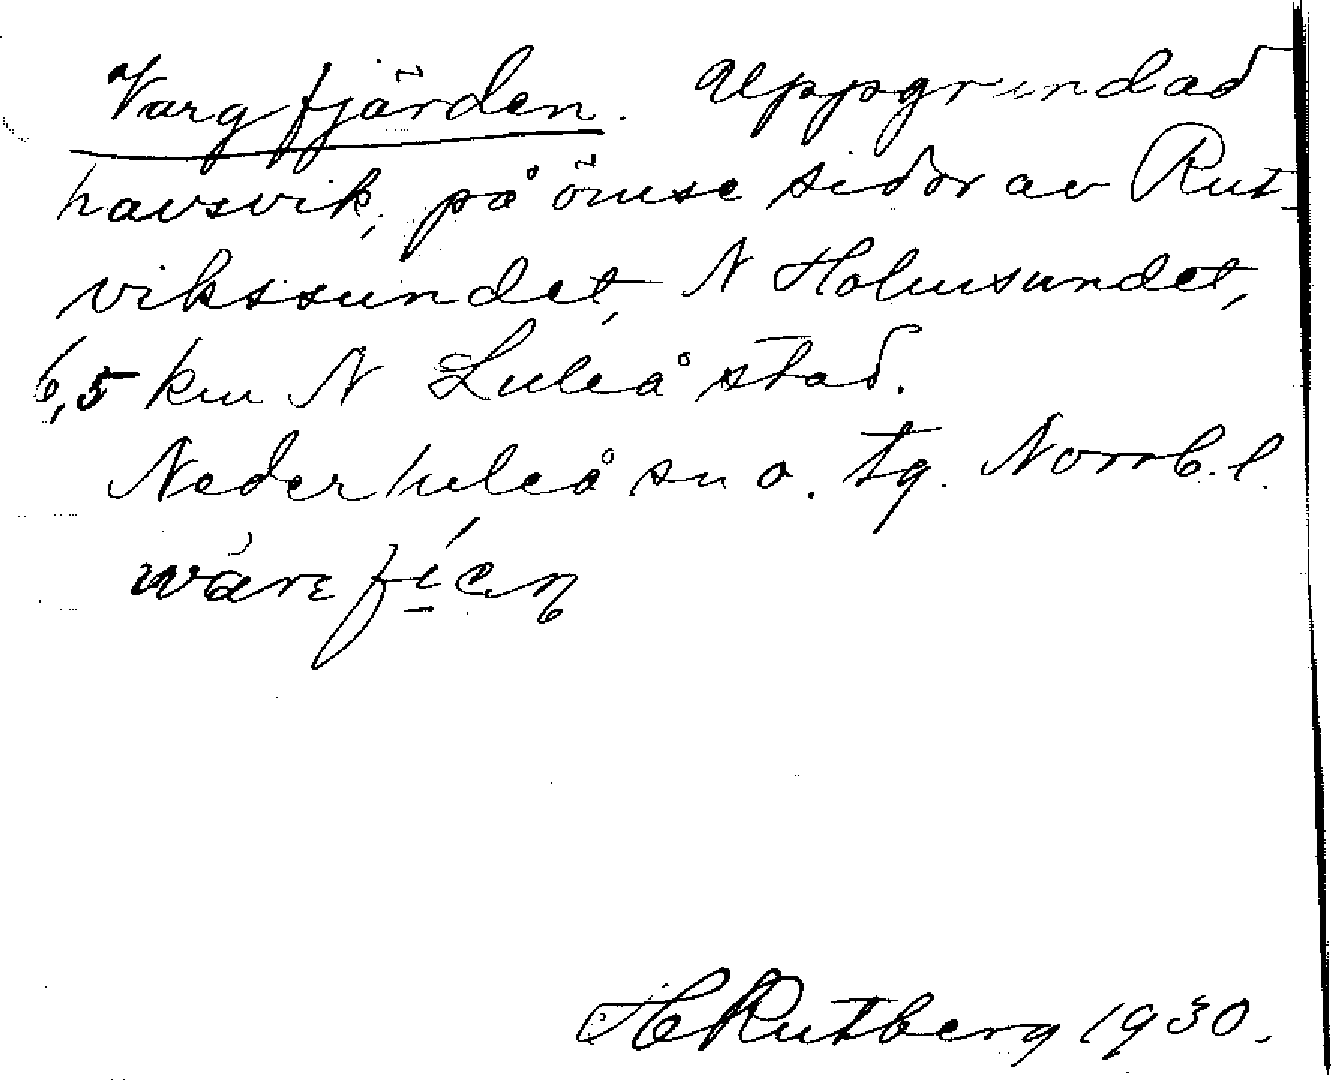 Vargfjärden. Uppgrundad
havsvik, på ömse sidor av Rut-
vikssundet, N Holmsundet,
6,5 km N Luleå stad.
Nederluleå sn o. tg. Norrb. l.
HRutberg 1930.